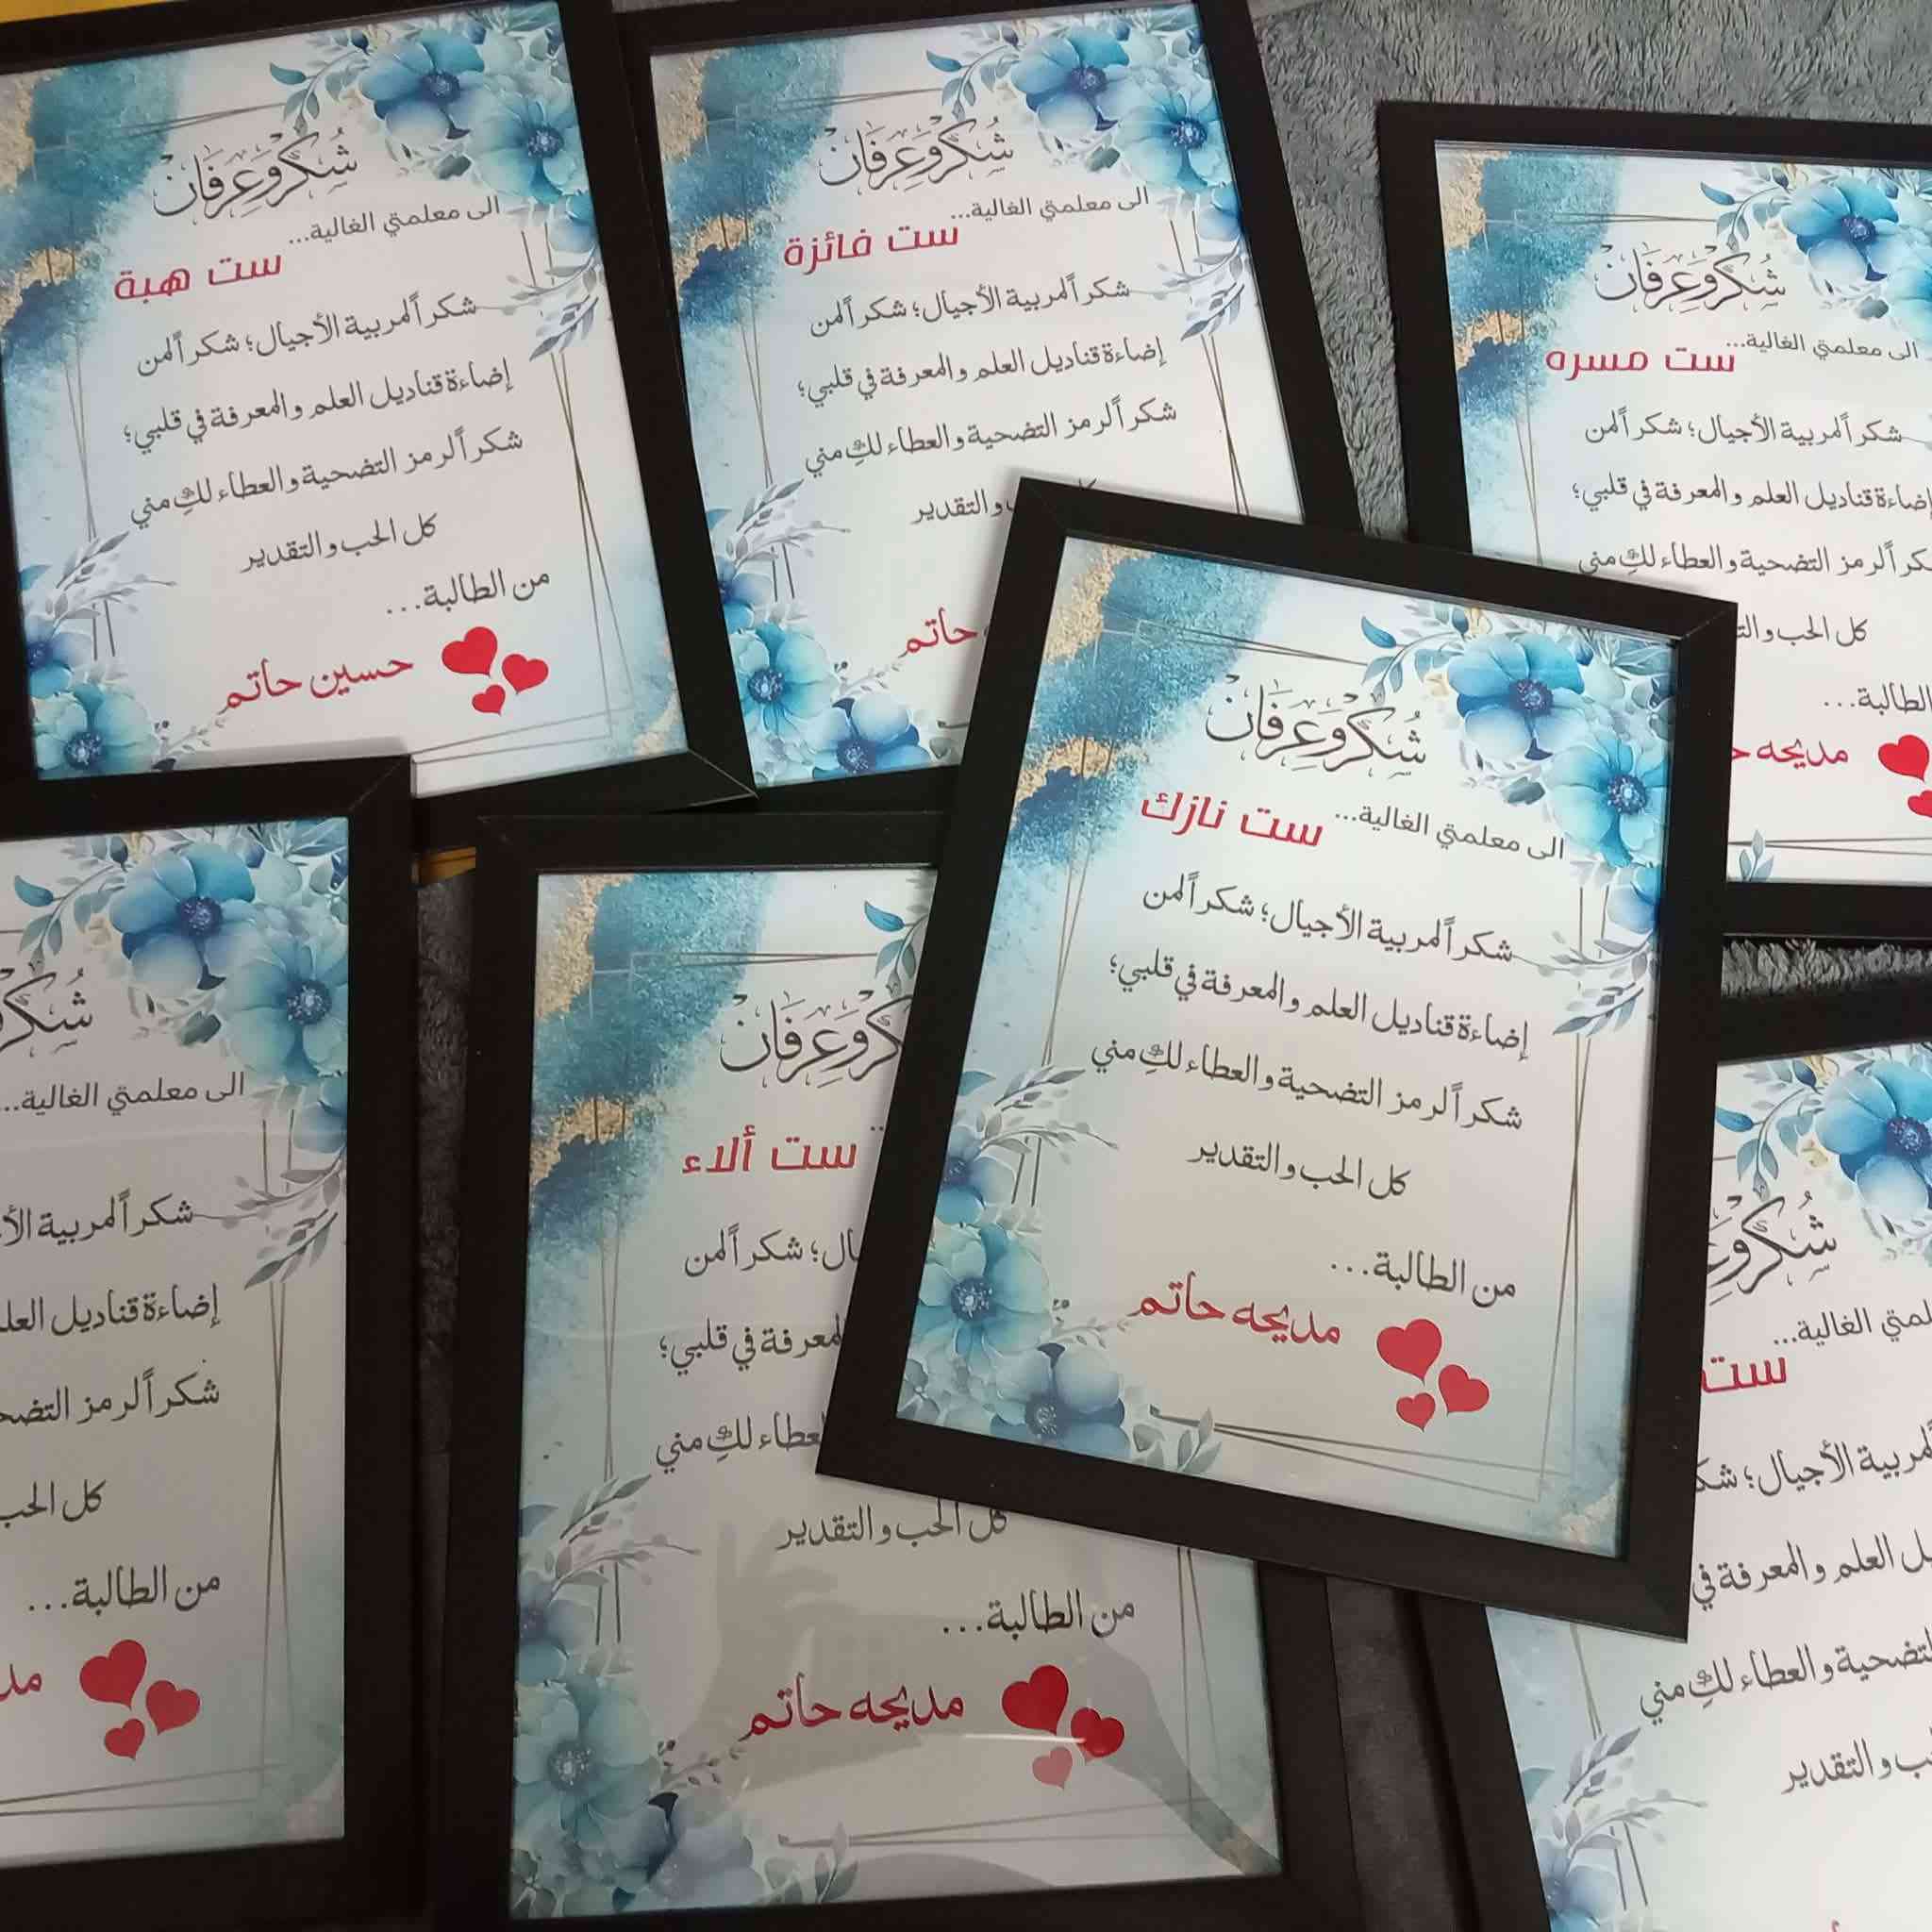 شُكْرٌ وَعِرفَان
الى معلمتي الغالية...
ست هبة
شكراً لمربية الأجيال؛ شكراً لمن
إضاءة قناديل العلم والمعرفة في قلبي؛
شكراً لرمز التضحية والعطاء لكِ مني
كل الحب والتقدير
من الطالبة...
حسين حاتم
شُكْرٌ وَعِرفَان
الى معلمتي الغالية...
ست فائزة
شكراً لمربية الأجيال؛ شكراً لمن
إضاءة قناديل العلم والمعرفة في قلبي؛
شكراً لرمز التضحية والعطاء لكِ مني
والتقدير
حاتم
شُكْرٌ وَعِرفَان
الى معلمتي الغالية...
ست مسره
شكراً لمربية الأجيال؛ شكراً لمن
إضاءة قناديل العلم والمعرفة في قلبي؛
شكراً لرمز التضحية والعطاء لكِ مني
كل الحب
مديحه
شُكْرٌ وَعِرفَان
الى معلمتي الغالية...
ست نازك
شكراً لمربية الأجيال؛ شكراً لمن
إضاءة قناديل العلم والمعرفة في قلبي؛
شكراً لرمز التضحية والعطاء لكِ مني
كل الحب والتقدير
من الطالبة...
مديحه حاتم
الى معلمتي الغالية...
شكراً لمربية
إضاءة قناديل
شكراً لرمز
كل الحب
من الطالبة...
وَعِرفَان
ست ألاء
شكراً لمن
في قلبي؛
لكِ مني
كل الحب والتقدير
من الطالبة...
مديحه حاتم
الغالية...
ست
لمربية الأجيال؛
العلم والمعرفة في
والعطاء لكِ مني
والتقدير